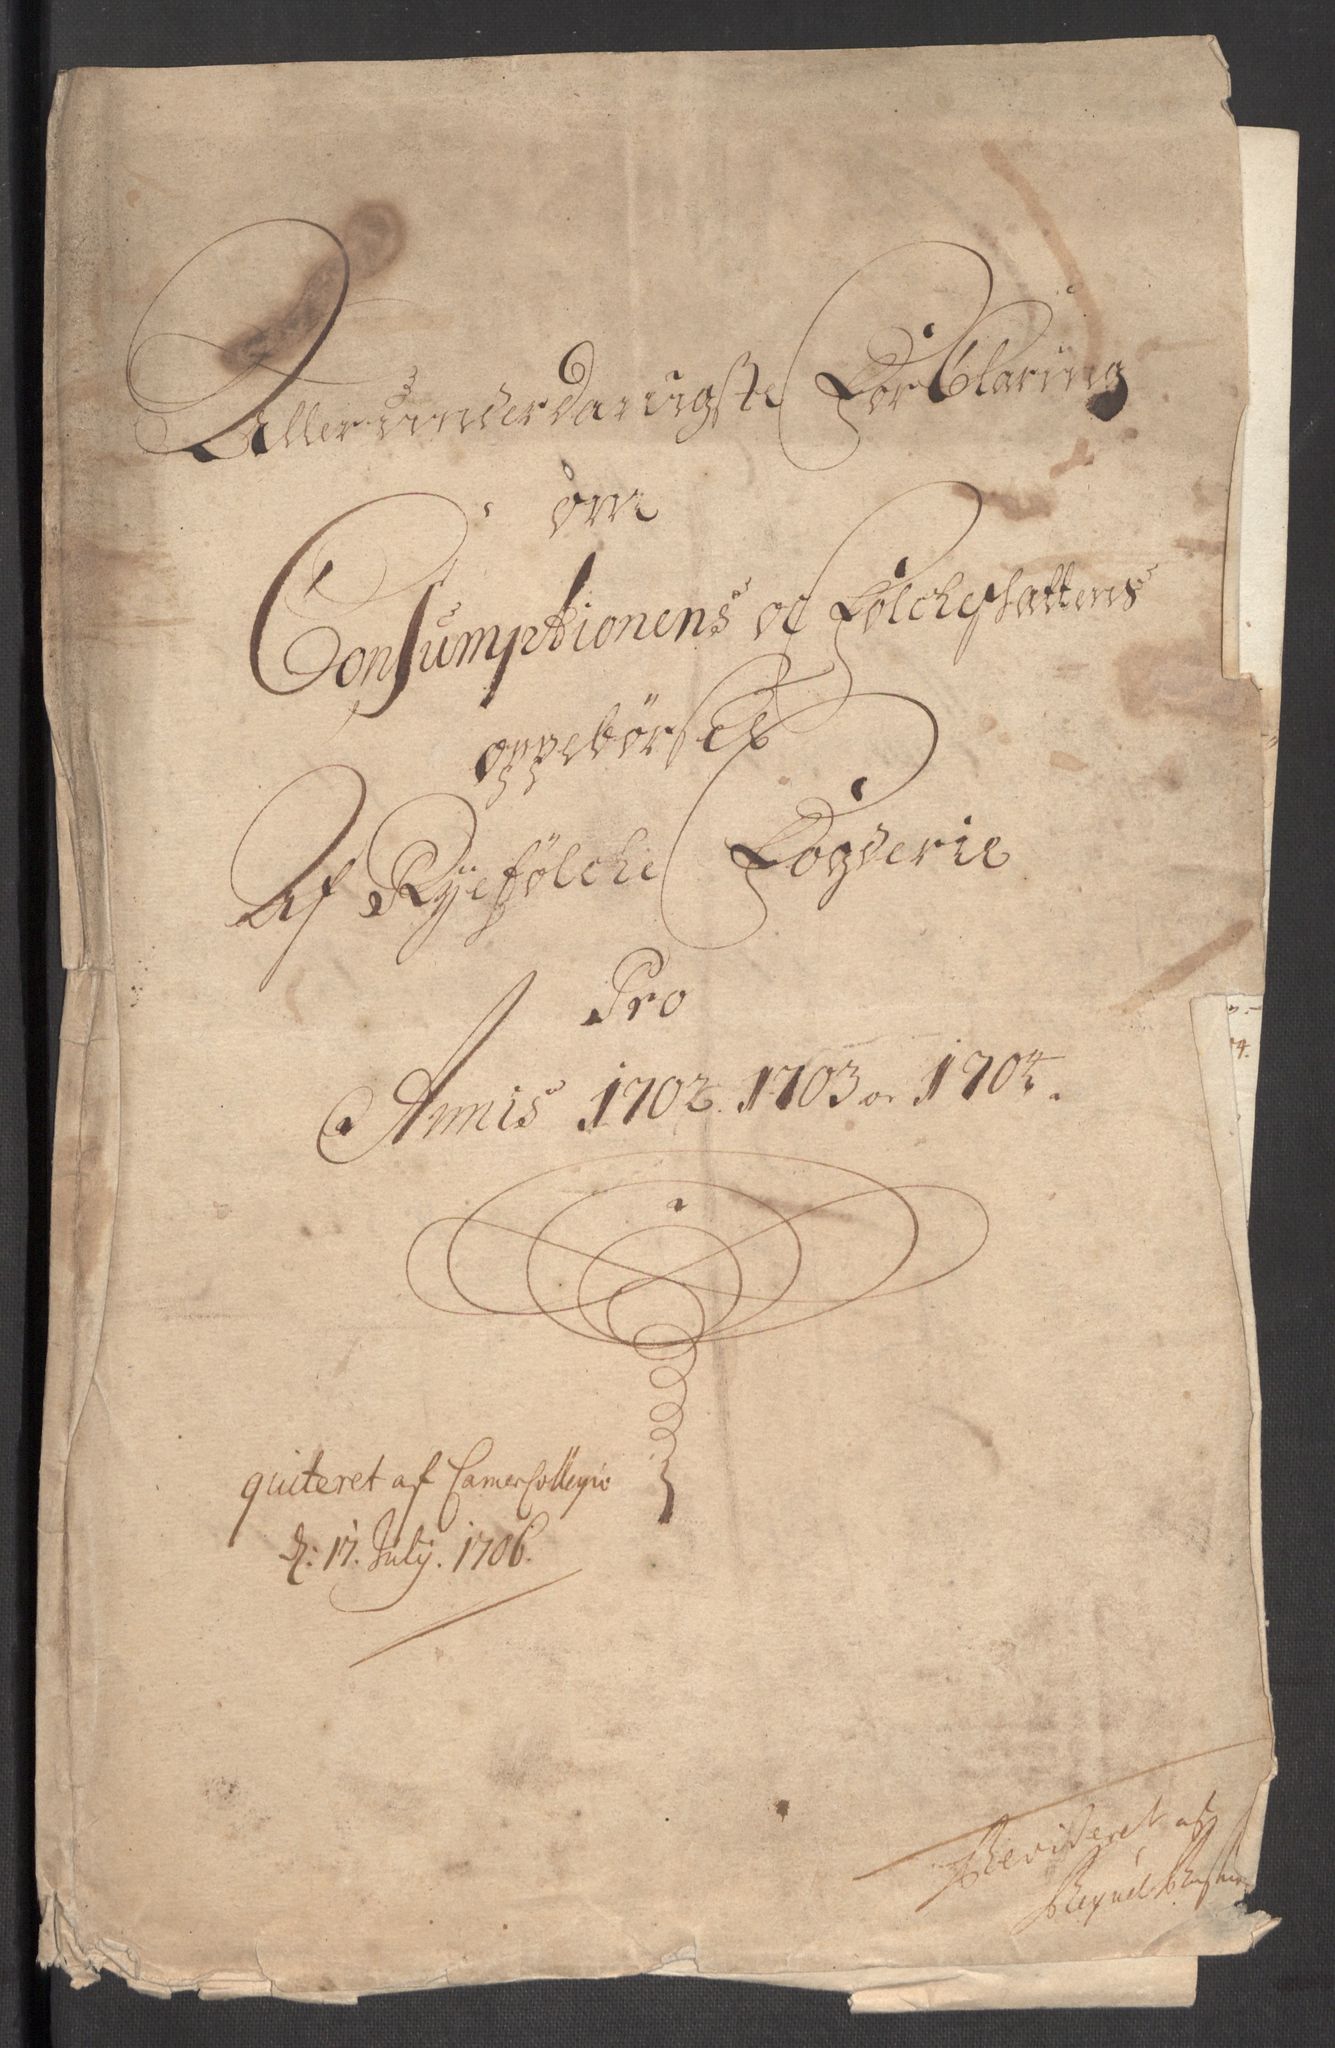 Allerunderdanigste Forklaring
om
Consumptionens og Folcheskattens
oppebörsel
Af Ryefölche Fogderie
Pro
Annis 1702. 1703 og 1704.
quiteret af Camer Collegio
d: 17. July. 1706.
Revideret af